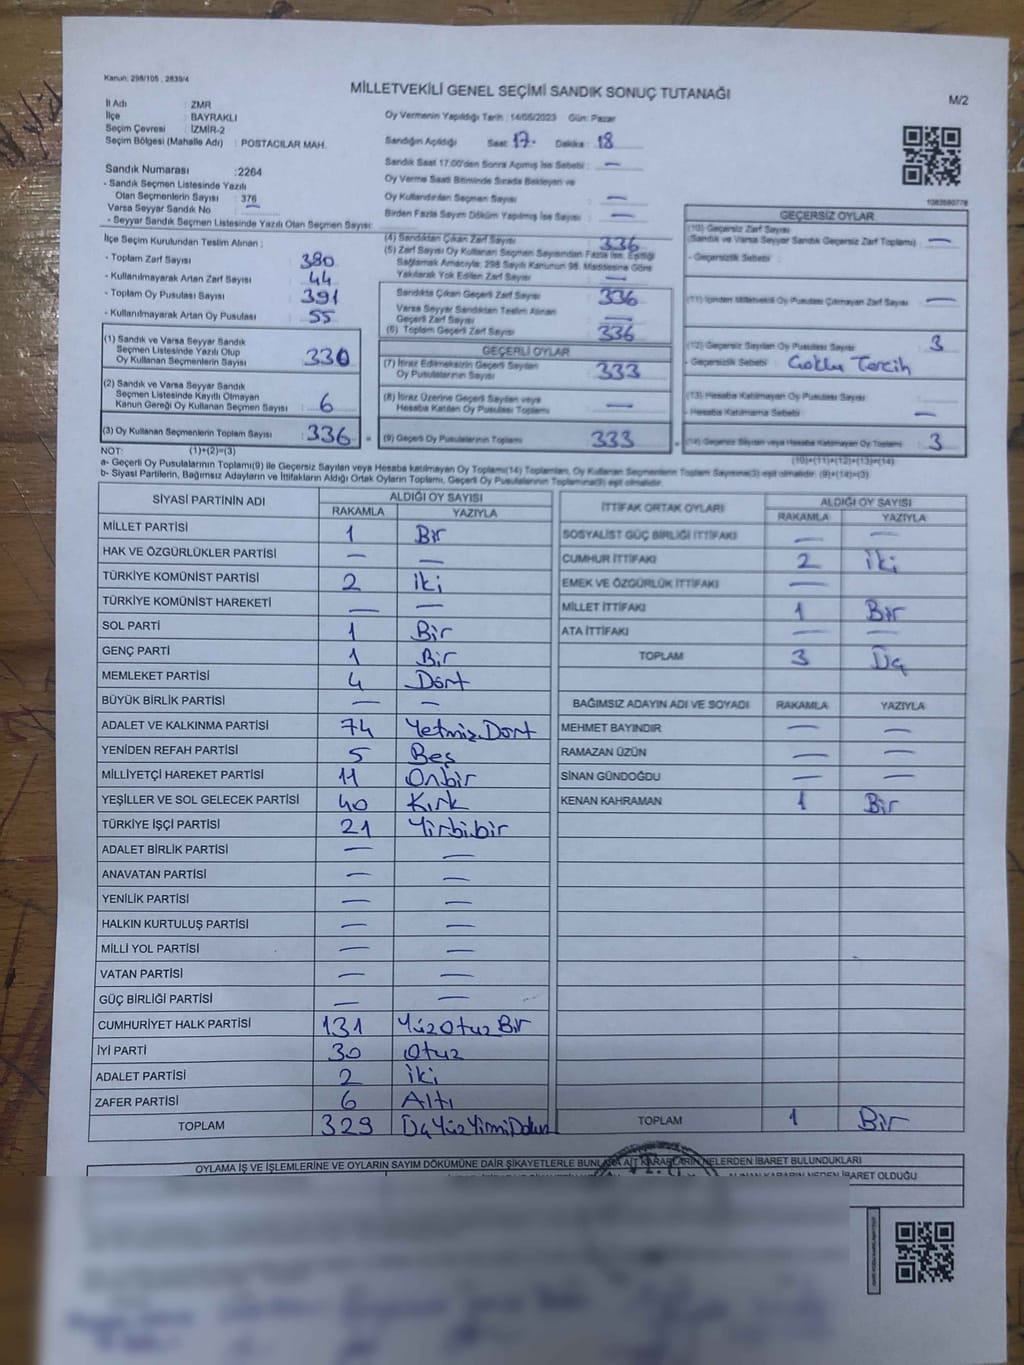 Kanun: 298/105 , 2839/4
MİLLETVEKİLİ GENEL SEÇİMİ SANDIK SONUÇ TUTANAĞI
M/2
İl Adı : ZMR
İlçe : BAYRAKLI
Seçim Çevresi : İZMİR-2
Seçim Bölgesi (Mahalle Adı) : POSTACILAR MAH.
Oy Vermenin Yapıldığı Tarih : 14/05/2023 Gün: Pazar
Sandığın Açıldığı Saat: 17. Dakika: 18
Sandık Saat 17.00'den Sonra Açılmış İse Sebebi : —
Oy Verme Saati Bitiminde Sırada Bekleyen ve
Oy Kullandırılan Seçmen Sayısı : —
Birden Fazla Sayım Döküm Yapılmış İse Sayısı : —
Sandık Numarası :2264
- Sandık Seçmen Listesinde Yazılı
Olan Seçmenlerin Sayısı : 376
Varsa Seyyar Sandık No :
- Seyyar Sandık Seçmen Listesinde Yazılı Olan Seçmen Sayısı:
1083580778
İlçe Seçim Kurulundan Teslim Alınan ;
- Toplam Zarf Sayısı : 380
- Kullanılmayarak Artan Zarf Sayısı : 44
- Toplam Oy Pusulası Sayısı : 391
- Kullanılmayarak Artan Oy Pusulası : 55
(1) Sandık ve Varsa Seyyar Sandık
Seçmen Listesinde Yazılı Olup
Oy Kullanan Seçmenlerin Sayısı : 330
(2) Sandık ve Varsa Seyyar Sandık
Seçmen Listesinde Kayıtlı Olmayan
Kanun Gereği Oy Kullanan Seçmen Sayısı : 6
(3) Oy Kullanan Seçmenlerin Toplam Sayısı : 336
(4) Sandıktan Çıkan Zarf Sayısı : 336
(5) Zarf Sayısı Oy Kullanan Seçmen Sayısından Fazla İse, Eşitliği
Sağlamak Amacıyla; 298 Sayılı Kanunun 98. Maddesine Göre
Yakılarak Yok Edilen Zarf Sayısı : —
Sandıkta Çıkan Geçerli Zarf Sayısı : 336
Varsa Seyyar Sandıktan Teslim Alınan
Geçerli Zarf Sayısı : —
(6) Toplam Geçerli Zarf Sayısı : 336
GEÇERLİ OYLAR
(7) İtiraz Edilmeksizin Geçerli Sayılan
Oy Pusulalarının Sayısı : 333
(8) İtiraz Üzerine Geçerli Sayılan veya
Hesaba Katılan Oy Pusulası Toplamı : —
(9) Geçerli Oy Pusulalarının Toplamı : 333
GEÇERSİZ OYLAR
(10) Geçersiz Zarf Sayısı
(Sandık ve Varsa Seyyar Sandık Geçersiz Zarf Toplamı) : —
- Geçersizlik Sebebi :
(11) İçinden Milletvekili Oy Pusulası Çıkmayan Zarf Sayısı : —
(12) Geçersiz Sayılan Oy Pusulası Sayısı : 3
- Geçersizlik Sebebi : Çoklu Tercih
(13) Hesaba Katılmayan Oy Pusulası Sayısı :
- Hesaba Katılmama Sebebi : —
(14) Geçersiz Sayılan veya Hesaba Katılmayan Oy Toplamı : 3
NOT: (1)+(2)=(3)
(10)+(11)+(12)+(13)=(14)
a- Geçerli Oy Pusulalarının Toplamı(9) ile Geçersiz Sayılan veya Hesaba katılmayan Oy Toplamı(14) Toplamları, Oy Kullanan Seçmenlerin Toplam Sayısına(3) eşit olmalıdır. (9)+(14)=(3)
b- Siyasi Partilerin, Bağımsız Adayların ve İttifakların Aldığı Ortak Oyların Toplamı, Geçerli Oy Pusulalarının Toplamına(9) eşit olmalıdır.
SİYASİ PARTİNİN ADI ALDIĞI OY SAYISI
RAKAMLA YAZIYLA
MİLLET PARTİSİ 1 Bir
HAK VE ÖZGÜRLÜKLER PARTİSİ — —
TÜRKİYE KOMÜNİST PARTİSİ 2 İki
TÜRKİYE KOMÜNİST HAREKETİ — —
SOL PARTİ 1 Bir
GENÇ PARTİ 1 Bir
MEMLEKET PARTİSİ 4 Dört
BÜYÜK BİRLİK PARTİSİ — —
ADALET VE KALKINMA PARTİSİ 74 Yetmiş Dört
YENİDEN REFAH PARTİSİ 5 Beş
MİLLİYETÇİ HAREKET PARTİSİ 11 Onbir
YEŞİLLER VE SOL GELECEK PARTİSİ 40 Kırk
TÜRKİYE İŞÇİ PARTİSİ 21 Yirbibir
ADALET BİRLİK PARTİSİ — —
ANAVATAN PARTİSİ — —
YENİLİK PARTİSİ — —
HALKIN KURTULUŞ PARTİSİ — —
MİLLİ YOL PARTİSİ — —
VATAN PARTİSİ — —
GÜÇ BİRLİĞİ PARTİSİ — —
CUMHURİYET HALK PARTİSİ 131 Yüz Otuz Bir
İYİ PARTİ 30 Otuz
ADALET PARTİSİ 2 İki
ZAFER PARTİSİ 6 Altı
TOPLAM 329 Üç Yüz Yirmi Dokuz
İTTİFAK ORTAK OYLARI ALDIĞI OY SAYISI
RAKAMLA YAZIYLA
SOSYALİST GÜÇ BİRLİĞİ İTTİFAKI — —
CUMHUR İTTİFAKI 2 İki
EMEK VE ÖZGÜRLÜK İTTİFAKI —
MİLLET İTTİFAKI 1 Bir
ATA İTTİFAKI — —
TOPLAM 3 Üç
BAĞIMSIZ ADAYIN ADI VE SOYADI RAKAMLA YAZIYLA
MEHMET BAYINDIR — —
RAMAZAN ÜZÜN — —
SİNAN GÜNDOĞDU — —
KENAN KAHRAMAN 1 Bir
TOPLAM 1 Bir
OYLAMA İŞ VE İŞLEMLERİNE VE OYLARIN SAYIM DÖKÜMÜNE DAİR ŞİKAYETLERLE BUNLARA AİT KARARLARIN NELERDEN İBARET BULUNDUKLARI
ALINAN KARARIN NEDEN İBARET OLDUĞU